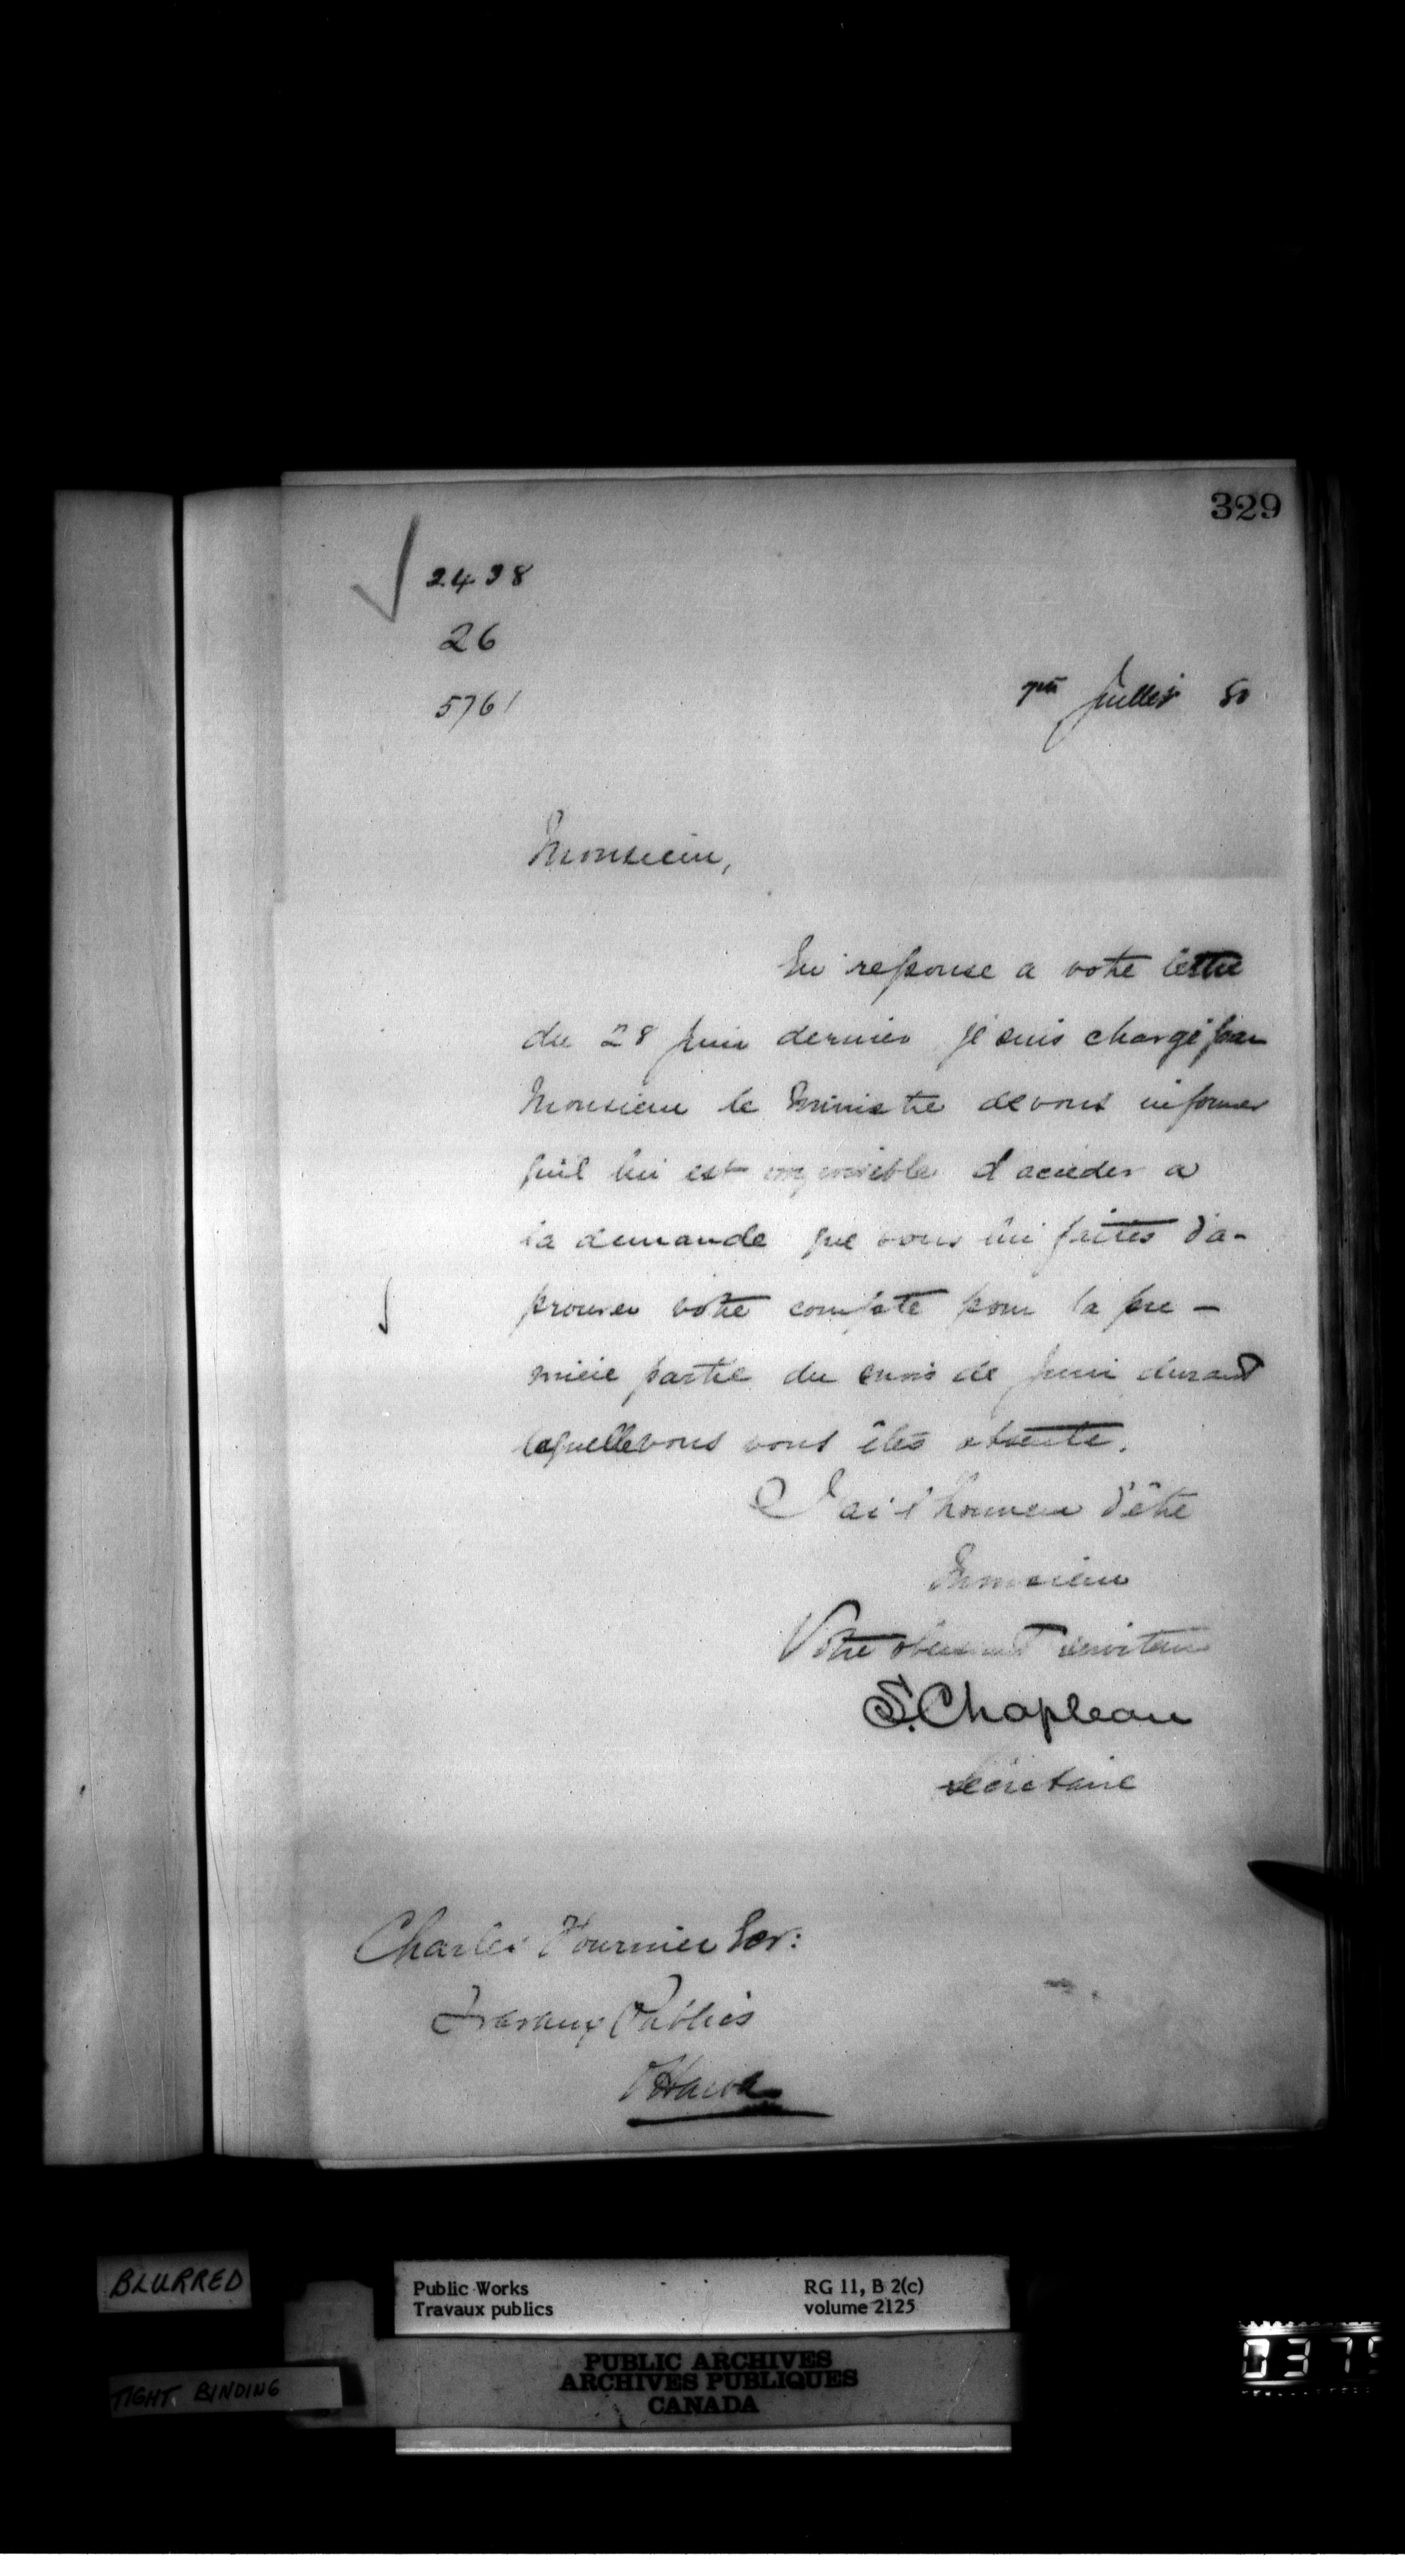 329
2438
26
5761
Juillet 80
Monsieur,
En reponse a votre lettre
du 28 Juin dernier je suis chargé par
Monsieur le Ministre de vous informer
qu'il lui est impossible d'acceder a
la demande que vous lui faites d'a-
prouver votre compte pour la pre-
miere partie du mois de Juin durant
laquelle vous vous êtes absenté.
J'ai l'honneur d'être
Monsieur
Votre obeissant serviteur
S. Chapleau
Secretaire
Charles Fournier Ecr:
Travaux Publics
Ottawa
BLURRED
Public Works
Travaux publics
RG 11, B 2(c)
volume 2125
TIGHT BINDING
PUBLIC ARCHIVES
ARCHIVES PUBLIQUES
CANADA